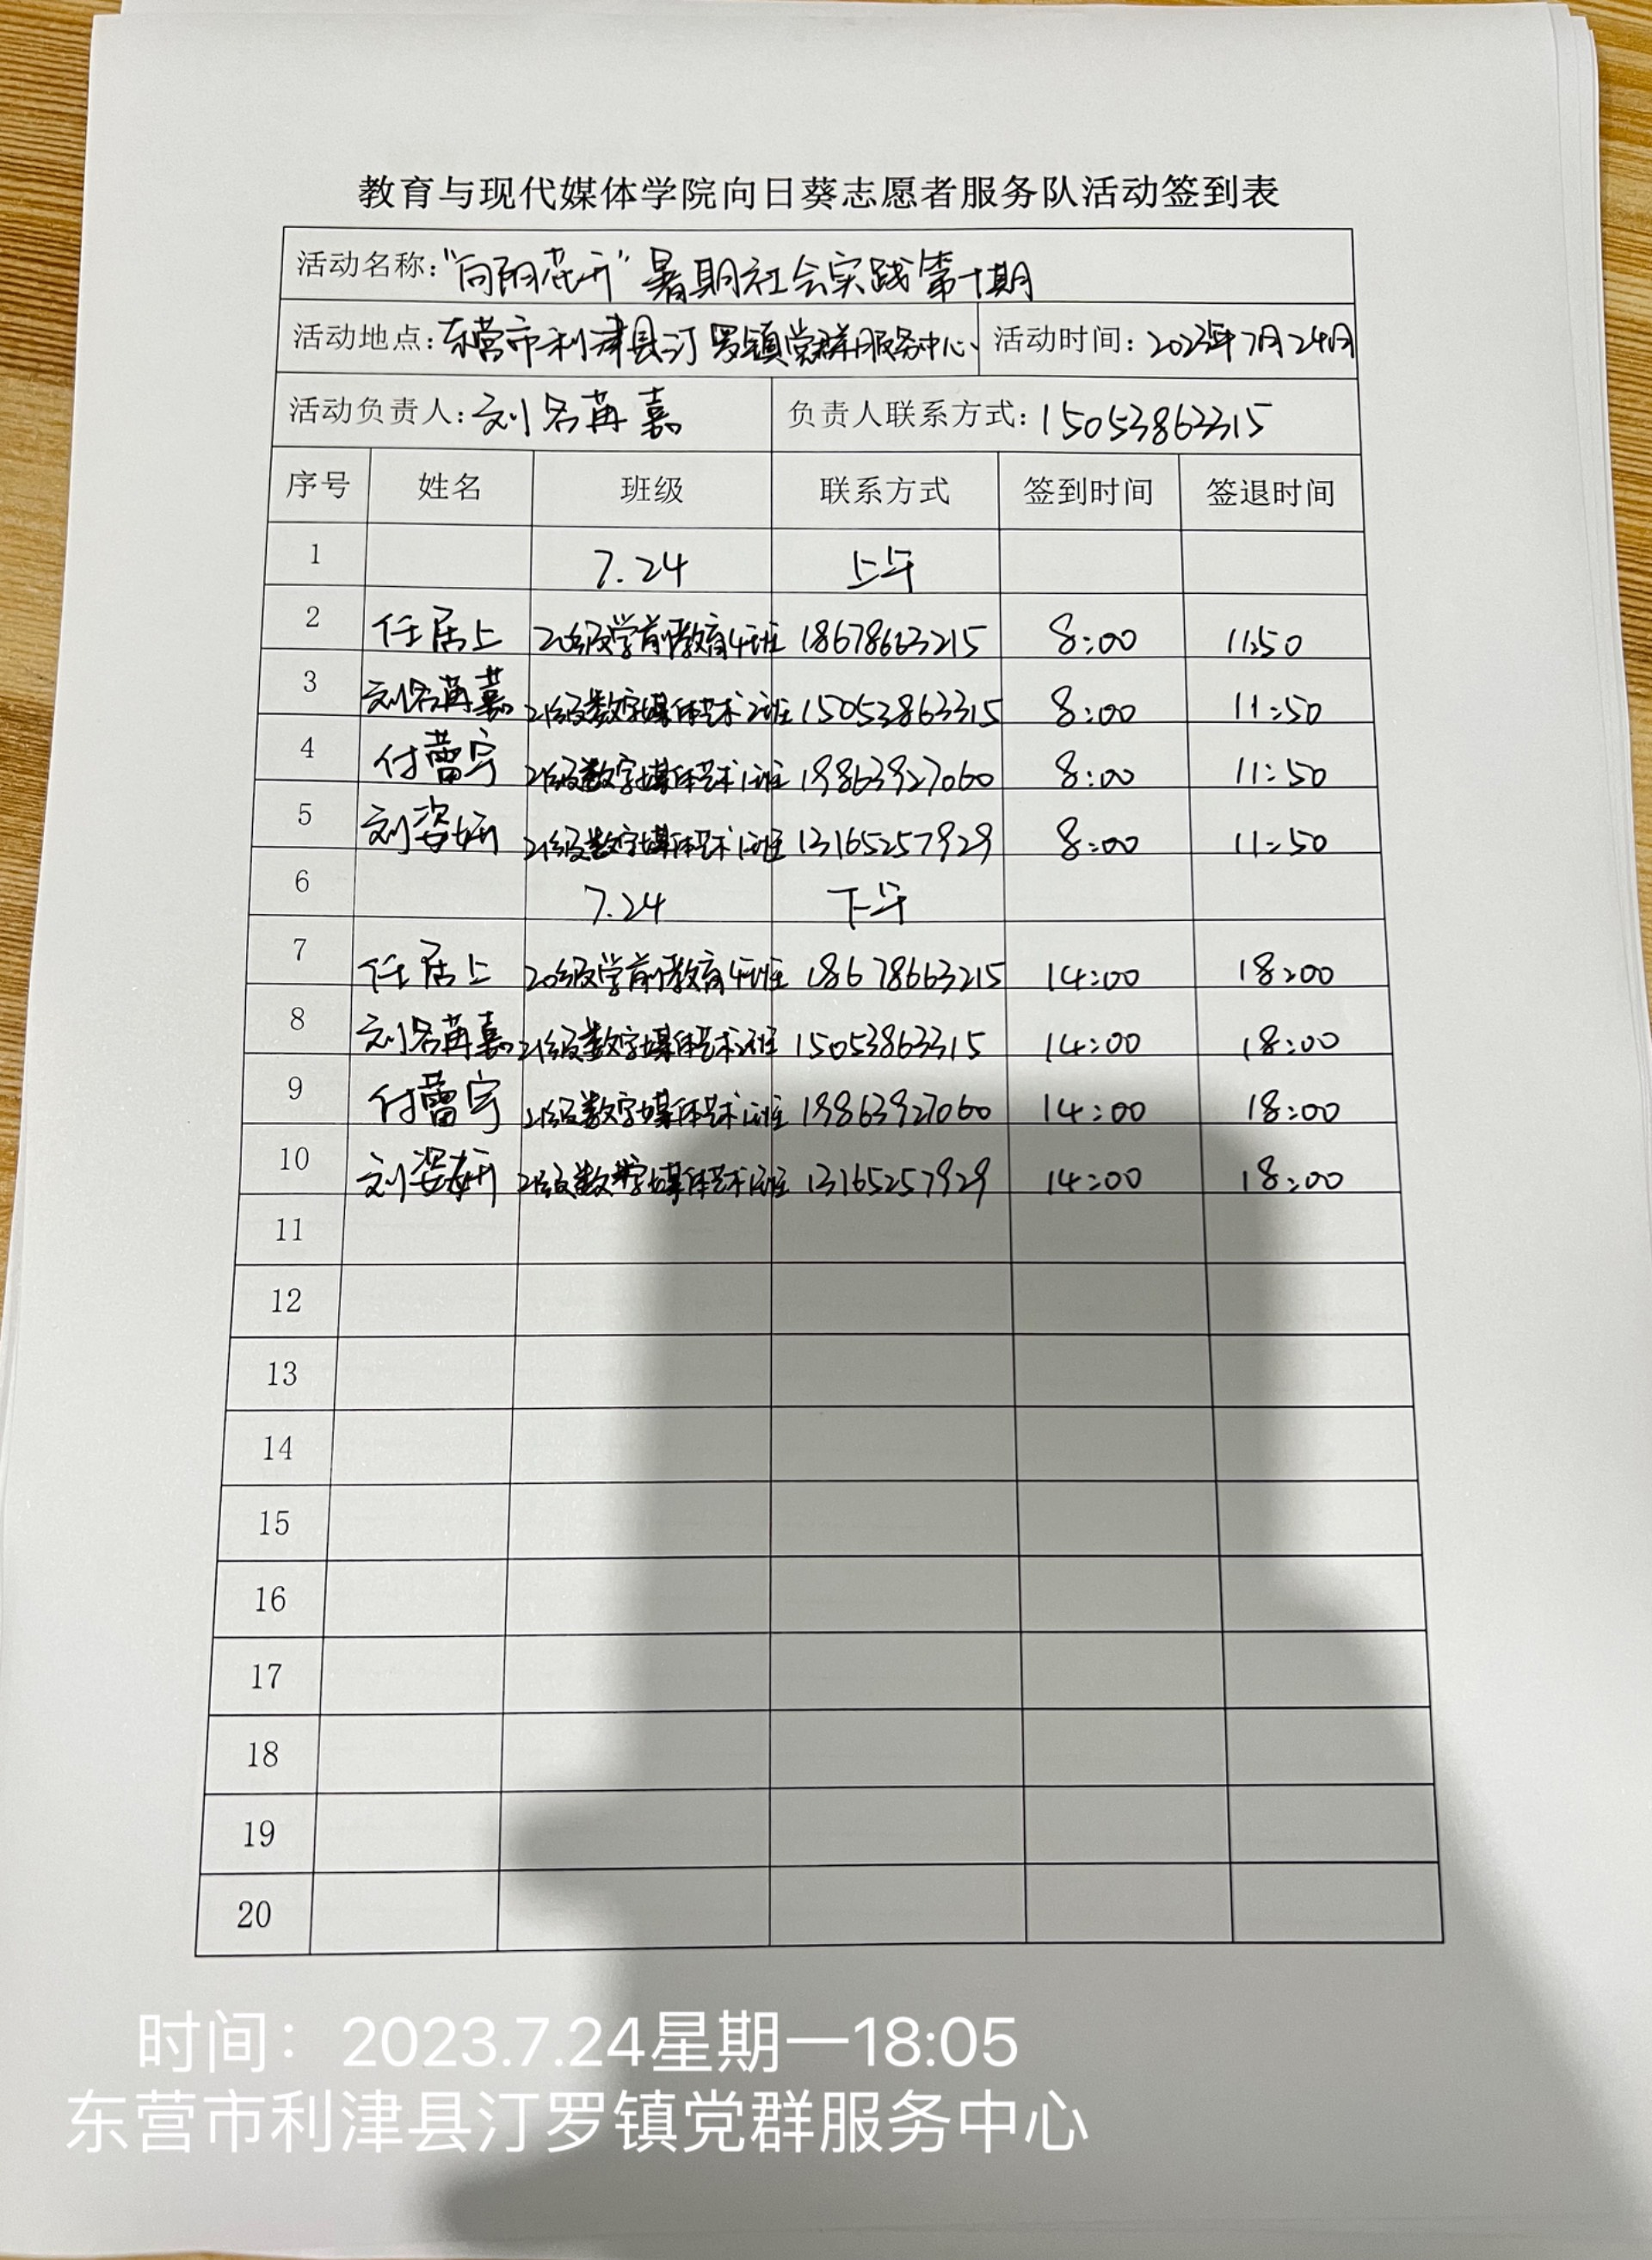 教育与现代媒体学院向日葵志愿者服务队活动签到表
活动名称：“向阳花开”暑期社会实践第十期
活动地点：东营市利津县汀罗镇党群服务中心 活动时间：2023年7月24日
活动负责人：刘名苒嘉 负责人联系方式：15053863315
序号 姓名 班级 联系方式 签到时间 签退时间
1 7.24 上午
2 任居上 20级学前教育4班 18678663215 8:00 11:50
3 刘名苒嘉 21级数字媒体艺术2班 15053863315 8:00 11:50
4 付蕾宇 21级数字媒体艺术1班 19863927060 8:00 11:50
5 刘姿妍 21级数字媒体艺术1班 13165257929 8:00 11:50
6 7.24 下午
7 任居上 20级学前教育4班 18678663215 14:00 18:00
8 刘名苒嘉 21级数字媒体艺术2班 15053863315 14:00 18:00
9 付蕾宇 21级数字媒体艺术1班 19863927060 14:00 18:00
10 刘姿妍 21级数字媒体艺术1班 13165257929 14:00 18:00
11
12
13
14
15
16
17
18
19
20
时间：2023.7.24星期一18:05
东营市利津县汀罗镇党群服务中心